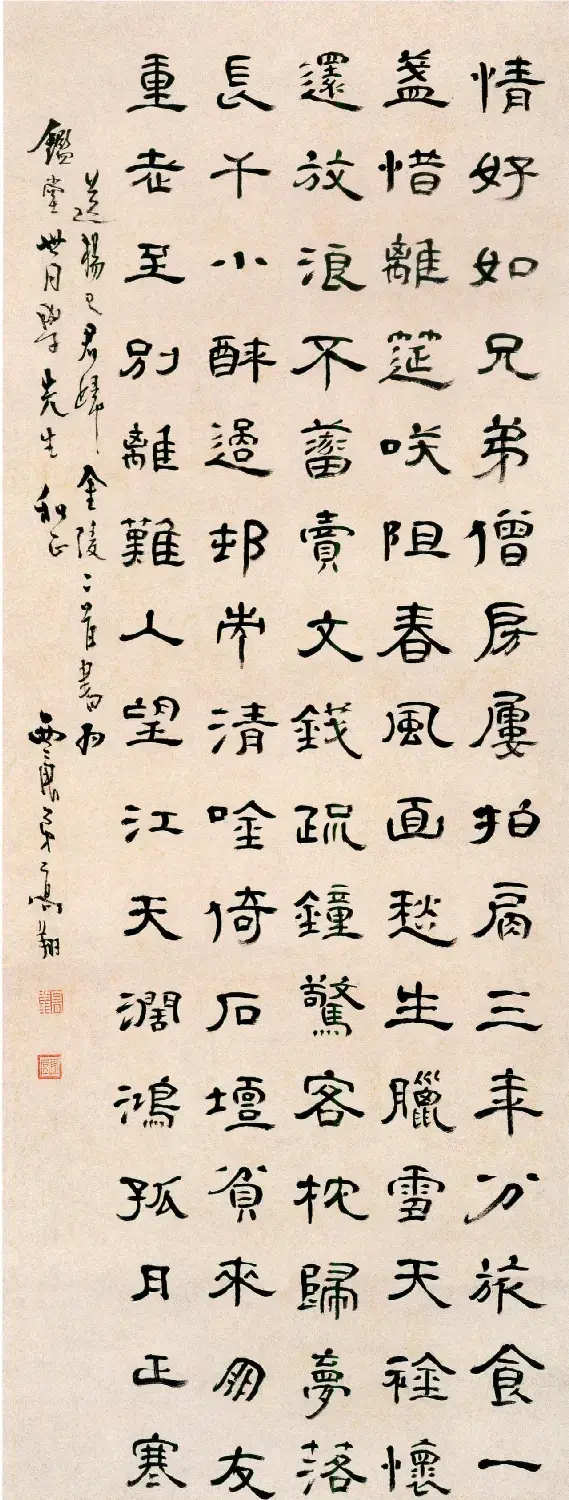 情好如兄弟僧房屢拍肩三年分旅食一
盞惜離筵咲阻春風面愁生臘雪天襟懷
還放浪不蓄賣文錢疏鐘驚客枕歸夢落
長干小醉過邨市清唫倚石壇貧來朋友
重老至別離難人望江天濶鴻孤月正寒
送楊已君歸金陵二首書為
鑑堂世同學先生 和正 西唐弟高翔